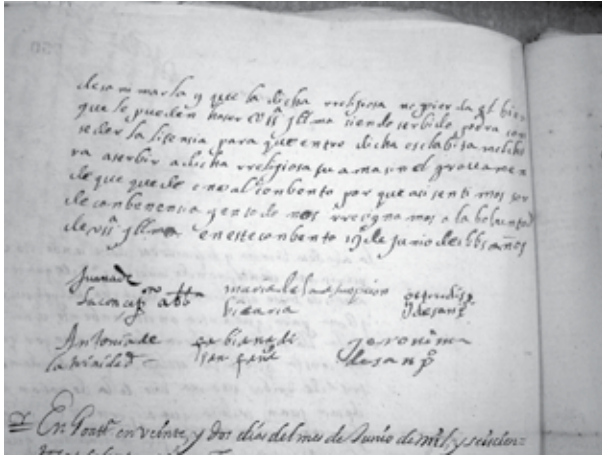 desanimarla y que la dicha rreligiosa no pierda el bien
que le pueden haser Vssª yllma siendo serbido podra con
seder la lisensia para que entre dicha esclabita
ra aserbir a dicha rreligiosa su ama sin el gravamen
de que quede en el conbento por que asi sentimos ser
de conbenencia y en todo nos rresignamos a la boluntad
de Vssª yllma en este conbento 19 de junio de años
Juana de maria de la asumpcion
la concepon abba Vicaria y de san po
Antonia de
la trinidad san Jeronima
de san po
En Goatha en veinte, y dos dias del mes de Junio de mil, y seiscien-